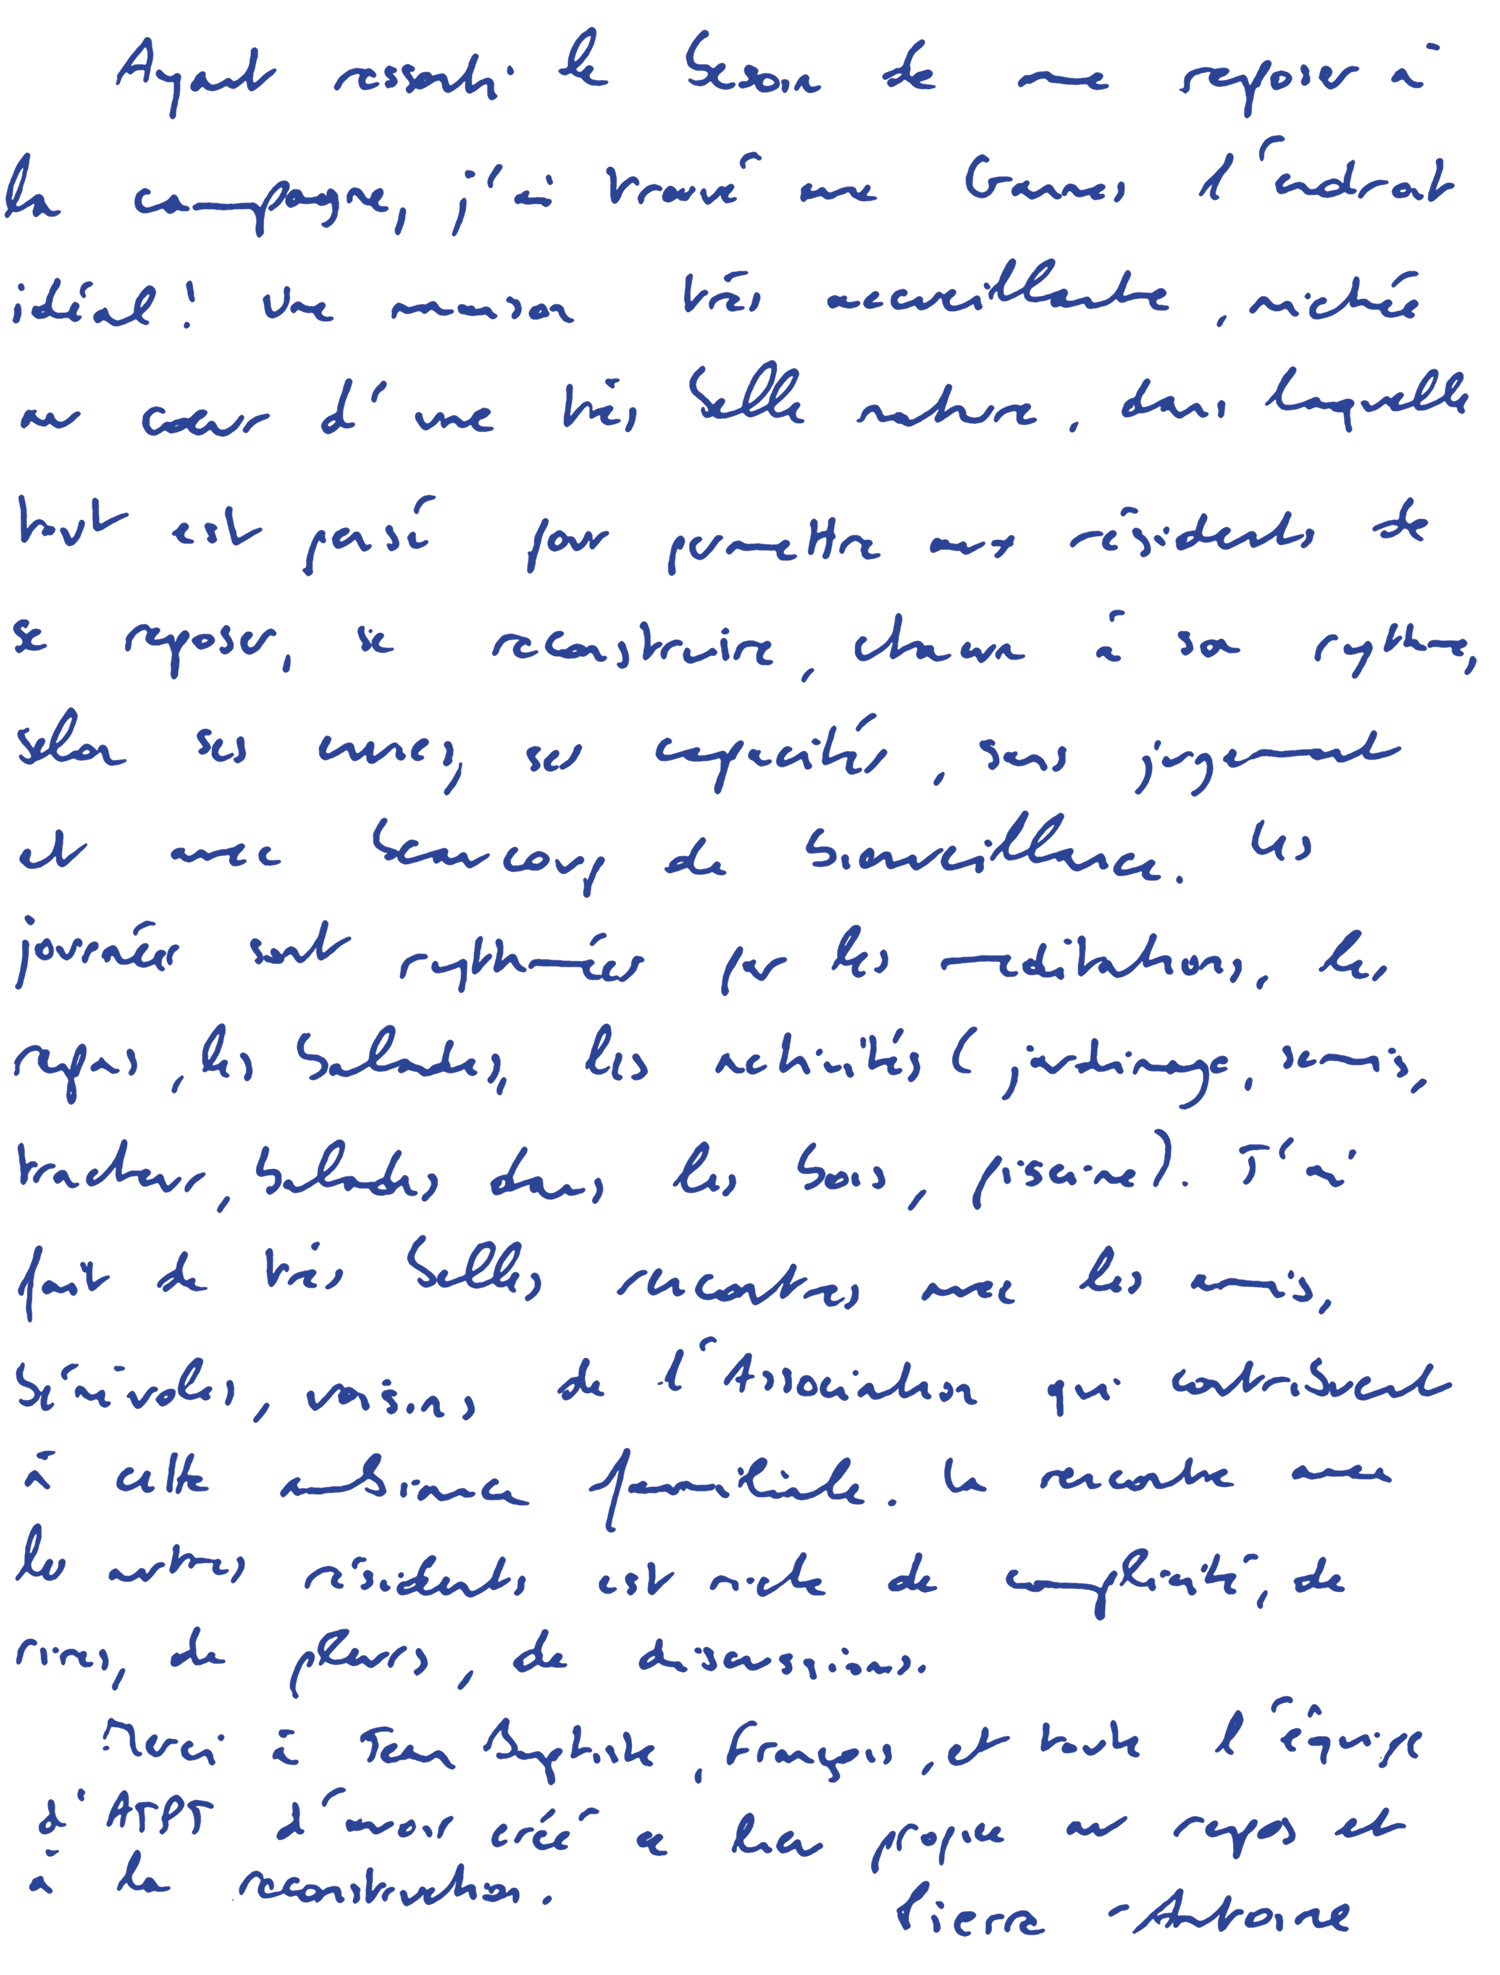 Ayant ressenti le besoin de me reposer à
la campagne, j'ai trouvé aux Gannes l'endroit
idéal ! Une maison très accueillante, nichée
au cœur d'une très belle nature, dans laquelle
tout est pensé pour permettre aux résidents de
se reposer, se reconstruire, chacun à son rythme,
selon ses envies, ses capacités, sans jugement
et avec beaucoup de bienveillance. Les
journées sont rythmées par les méditations, les
repas, les balades, les activités (jardinage, semis,
tracteur, balades dans les bois, piscine). J'ai
fait de très belles rencontres avec les amis,
bénévoles, voisins de l'Association qui contribuent
à cette ambiance familiale. La rencontre avec
les autres résidents est riche de complicité, de
rires, de pleurs, de discussions.
Merci à Jean Baptiste, François, et toute l'équipe
d'ATPT d'avoir créé ce lieu propice au repos et
à la reconstruction.
Pierre-Antoine